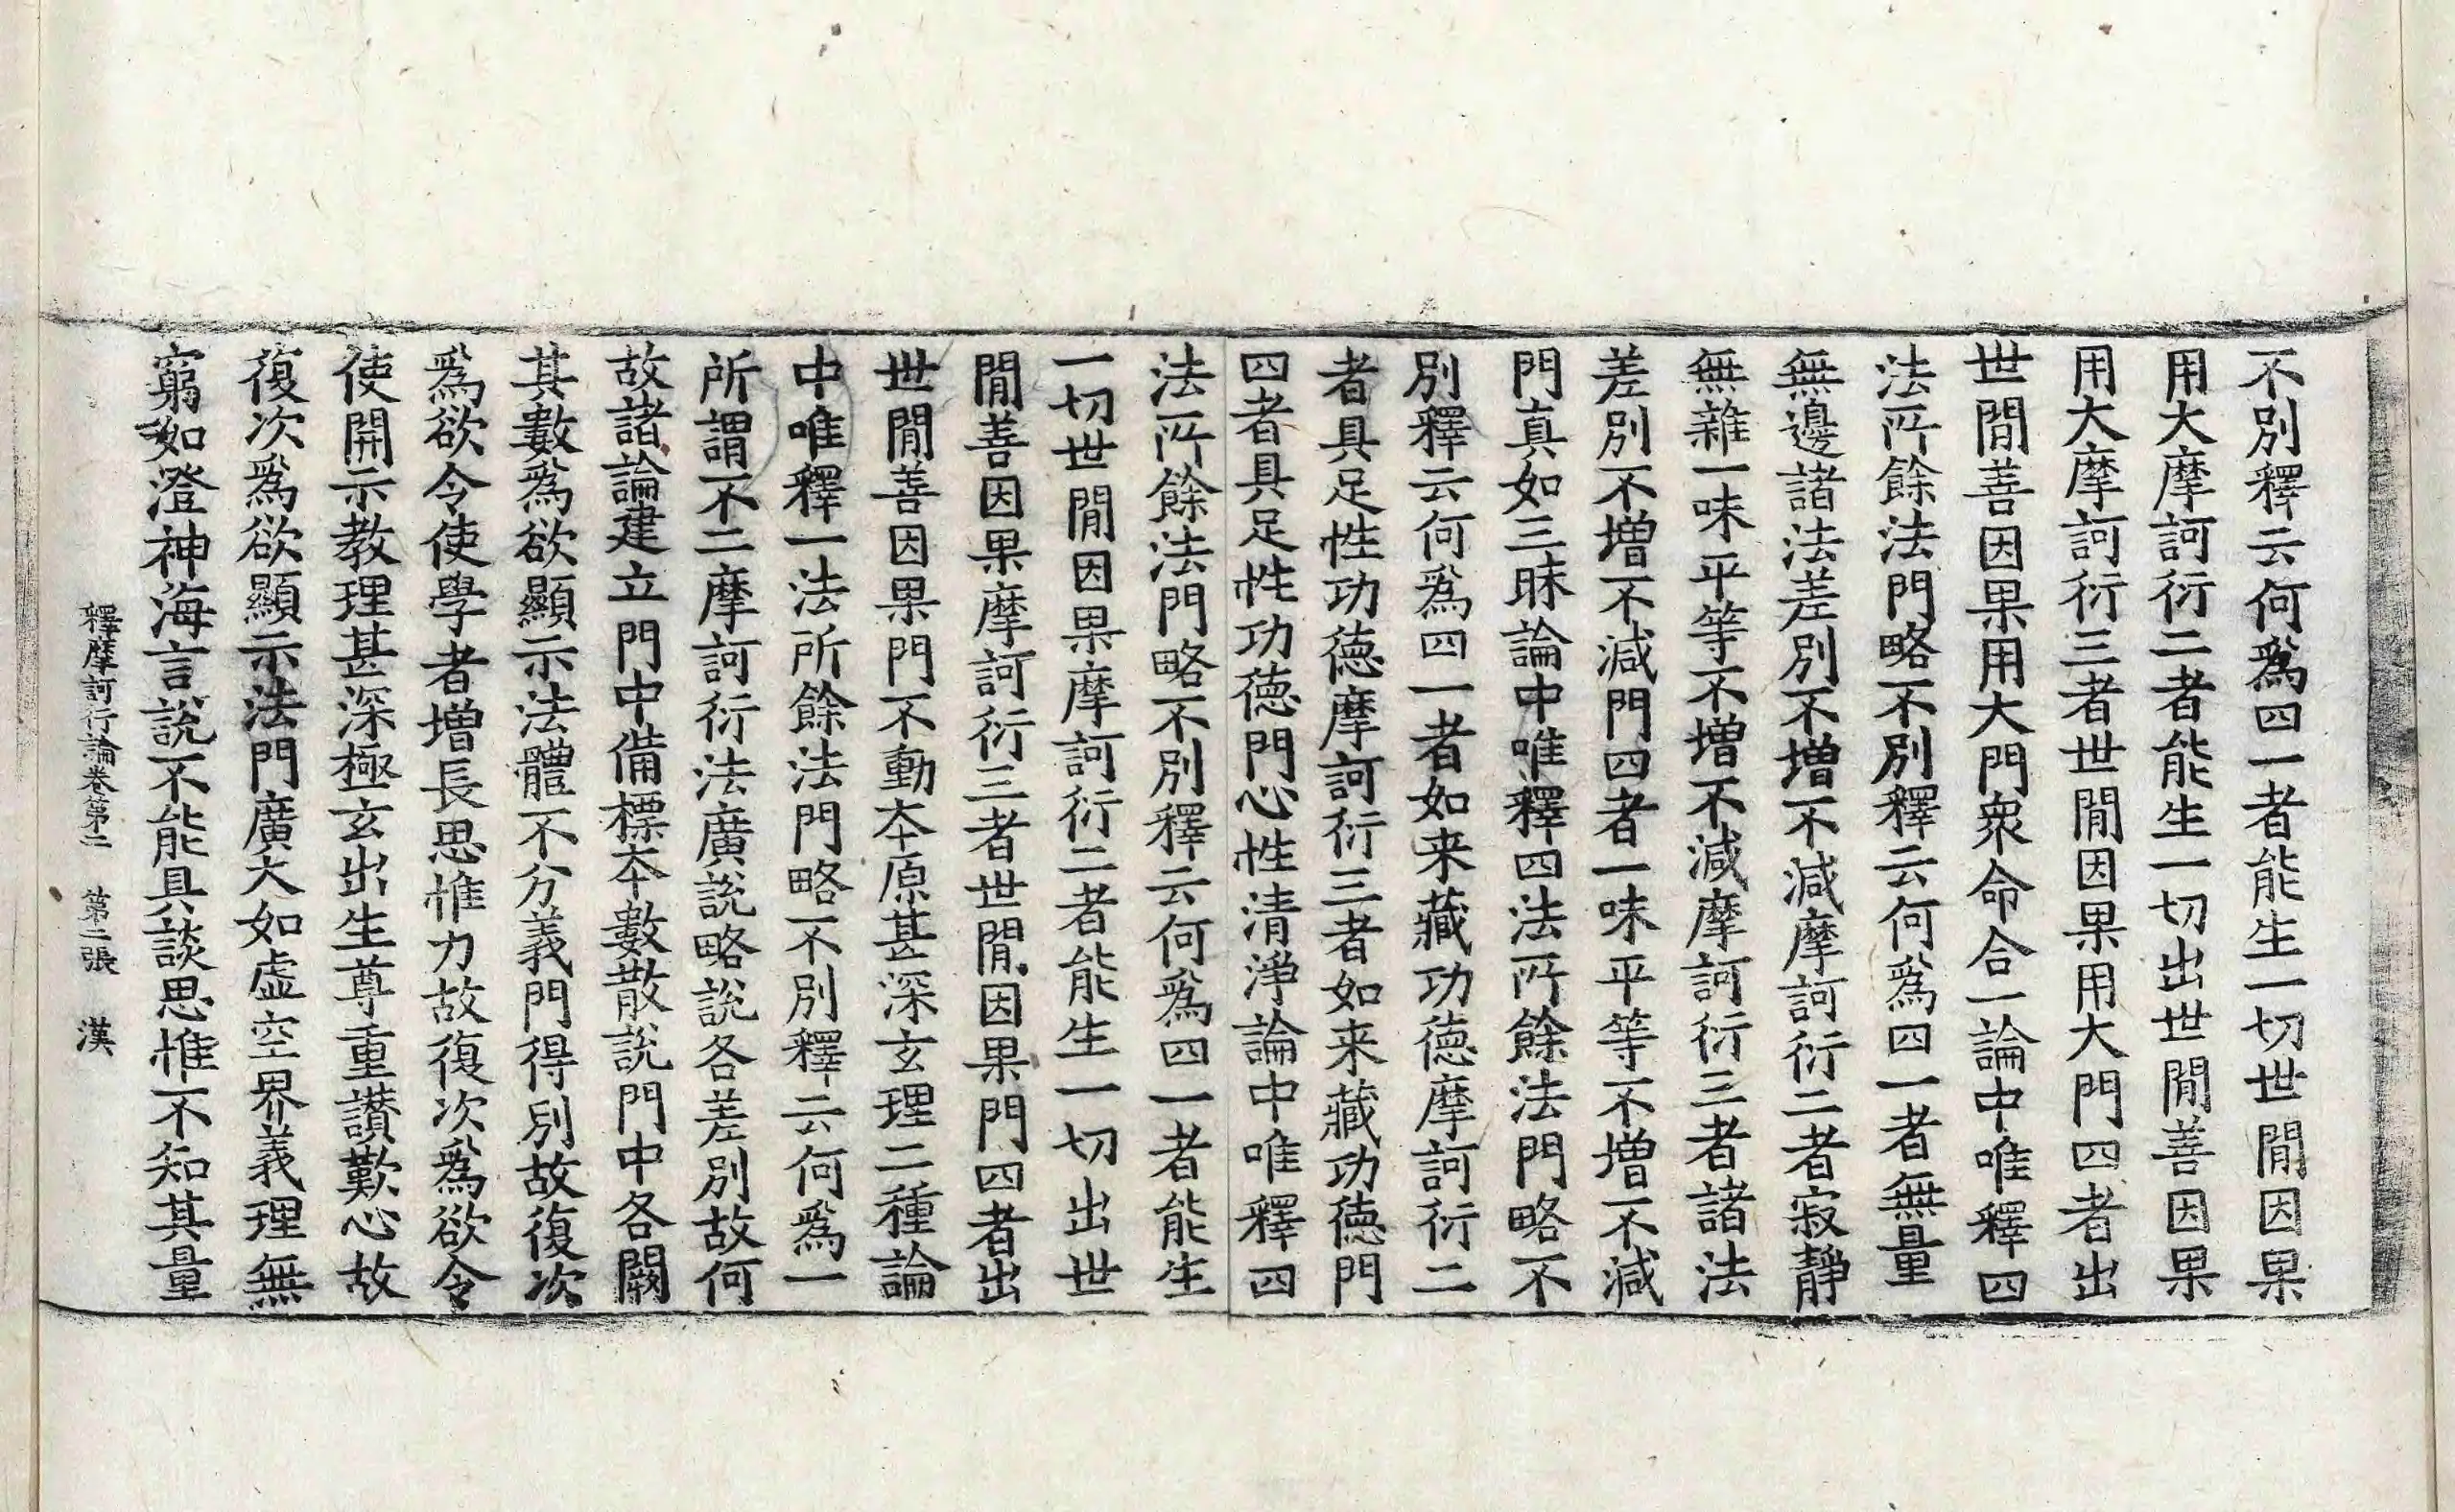 不別釋云何爲四一者能生一切世閒因果
用大摩訶衍二者能生一切出世閒善因果
用大摩訶衍三者世閒因果用大門四者出
世閒善因果用大門衆命合一論中唯釋四
法所餘法門略不別釋云何爲四一者無量
無邊諸法差別不增不減摩訶衍二者寂靜
無雜一味平等不增不減摩訶衍三者諸法
差別不增不減門四者一味平等不增不減
門真如三昧論中唯釋四法所餘法門略不
別釋云何爲四一者如来藏功德摩訶衍二
者具足性功德摩訶衍三者如来藏功德門
四者具足性功德門心性清淨論中唯釋四
法所餘法門略不別釋云何爲四一者能生
一切世閒因果摩訶衍二者能生一切出世
閒善因果摩訶衍三者世閒因果門四者出
世閒善因果門不動本原甚深玄理二種論
中唯釋一法所餘法門略不別釋云何爲一
所謂不二摩訶衍法廣說略說各差別故何
故諸論建立門中備標本數散說門中各闕
其數爲欲顯示法體不分義門得別故復次
爲欲令使學者增長思惟力故復次爲欲令
使開示教理甚深極玄出生尊重讚歎心故
復次爲欲顯示法門廣大如虛空界義理無
窮如澄神海言說不能具談思惟不知其量
釋摩訶衍論卷第二　第二張　漢